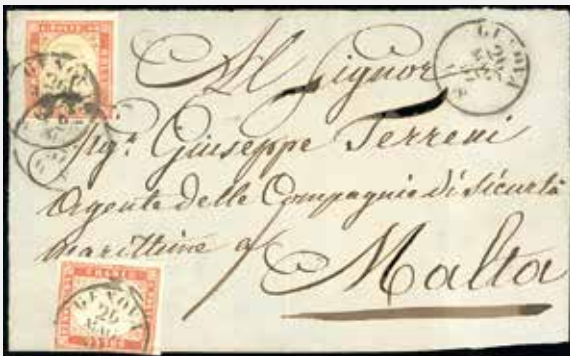 GENOVA
Al Signor
Sigr. Giuseppe Terreni
Agente delle Compagnie di Sicurtà
marittime a/
Malta
GENOVA
26